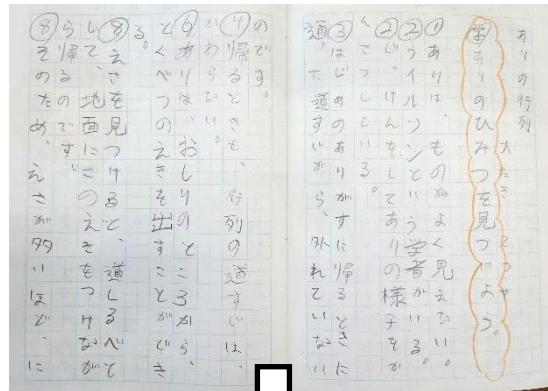 ありの行列
大たき
学ありのひみつを見つけよう。
①ありは、ものがよく見えない。
②ウイルソンという学者がいる。
②じっけんをしてありの様子をか
んさつしている。
③はじめのありがすに帰るときに
通った道すじから、外れていない
のです。
④帰るときも、行列の道すじは、
かわらない。
⑥ありは、おしりのところから、
とくべつのえきを出すことができ
る。
⑧えさを見つけると、道しるべと
して地面にこのえきをつけなが
ら帰るのです。
⑧そのため、えさが多いほど、に